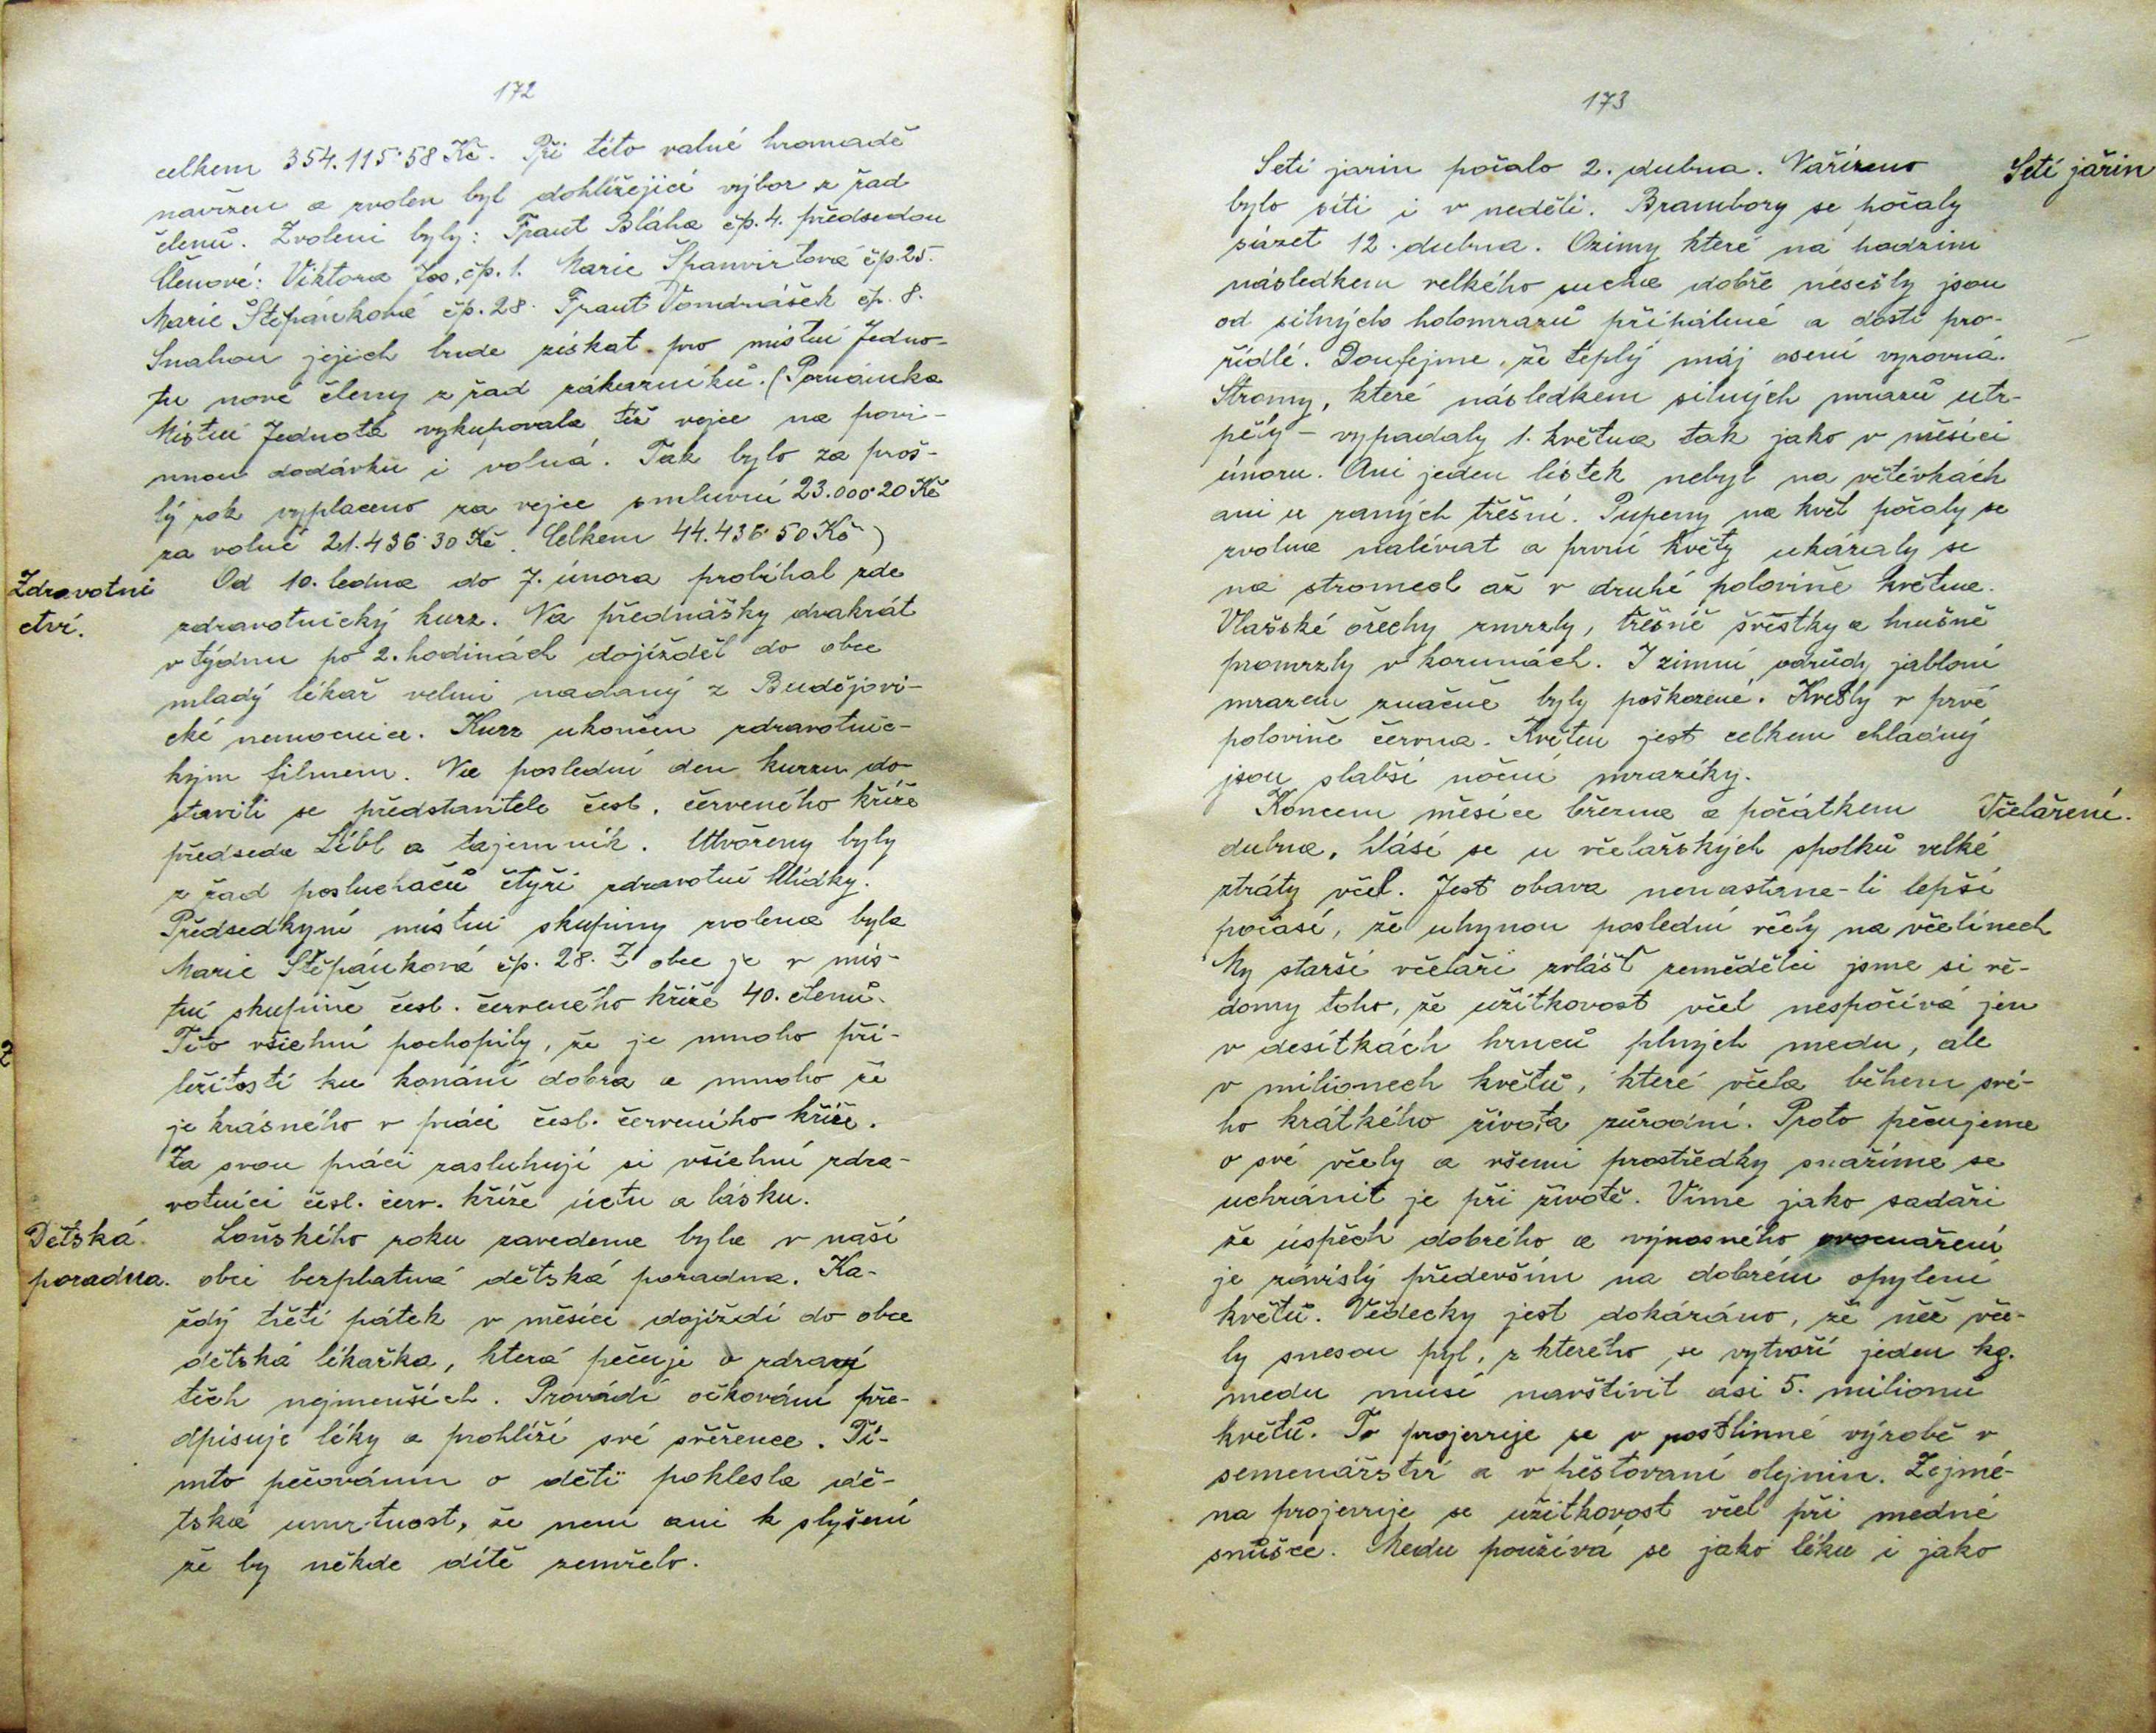 172
celkem 354.115·58 Kč. Při této valné hromadě
navržen a zvolen byl dohlížející výbor z řad
členů. Zvoleni byly: Frant Bláha čp. 4. předsedou
Členové: Viktora Jos. čp. 1. Marie Španvirtová čp. 25.
Marie Štěpánková čp. 28. Frant Vondrášek čp. 8.
Snahou jejich bude získat pro místní Jedno-
tu nové členy z řad zákazníků. (Poznámka
Místní Jednota vykupovala též vejce na povi-
nnou dodávku i volná. Tak bylo za proš-
lý rok vyplaceno za vejce smluvní 23.000·20 Kč
za volné 21.436·30 Kč. Celkem 44.436·50 Kč)
Zdravotni
ctví.
Od 10. ledna do 7. února probíhal zde
zdravotnický kurz. Na přednášky dvakrát
v týdnu po 2. hodinách dojížděl do obce
mladý lékař velmi nadaný z Budějovi-
cké nemocnice. Kurz ukončen zdravotnic-
kým filmem. Na poslední den kurzu do-
stavili se představitele česl. červeného kříže
předseda Líbl a tajemník. Utvořeny byly
z řad posluchačů čtyři zdravotní hlídky.
Předsedkyní místní skupiny zvolena byla
Marie Štěpánková čp. 28. Z obce je v mís-
tní skupině česl. červeného kříže 40. členů.
Tito všichni pochopily, že je mnoho pří-
ležitostí ku konání dobra a mnoho že
je krásného v práci česl. červeního kříže.
Za svou práci zasluhují si všichní zdra-
votníci česl. červ. kříže úctu a lásku.
Dětská
poradna.
Loňského roku zavedena byla v naší
obci bezplatná dětská poradna. Ka-
ždý třetí pátek v měsíci dojíždí do obce
dětská lékařka, která pečuje o zdraví
těch nejmenších. Provádí očkování pře-
dpisuje léky a prohlíží své svěřence. Tí-
mto pečováním o děti poklesla dě-
tská umrtnost, že není ani k slyšení
že by někde dítě zemřelo.
173
Setí jařin
Setí jarin počalo 2. dubna. Nařízeno
bylo síti i v neděli. Brambory se počaly
sázet 12. dubna. Ozimy které na podzim
následkem velkého sucha dobře nesešly jsou
od silných holomrazů přihálené a dosti pro-
řídlé. Doufejme, že teplý máj osení vyrovná.
Stromy, které následkem silných mrazů utr-
pěly – vypadaly 1. května tak jako v měsíci
únoru. Ani jeden lístek nebyl na větévkách
ani u raných třešní. Pupeny na květ počaly se
zvolna nalévat a první květy ukázaly se
na stromech až v druhé polovině května.
Vlašské ořechy zmrzly, třešně švestky a hrušně
promrzly v korunách. I zimní odrůdy jabloní
mrazem značně byly poškozené. Kvetly v prvé
polovině června. Květen jest celkem chladný
jsou slabší noční mrazíky.
Včelaření.
Koncem měsíce března a počátkem
dubna, hlásí se u včelařských spolků velké
ztráty včel. Jest obava nenastane-li lepší
počasí, že uhynou poslední včely na včelínech
My starší včelaři zvlášť zemědělci jsme si vě-
domy toho, že užitkovost včel nespočívá jen
v desítkách hrnců plných medu, ale
v milionech květů, které včela během své-
ho krátkého života zúrodní. Proto pečujeme
o své včely a všemi prostředky snažíme se
uchránit je při životě. Víme jako sadaři
že úspěch dobrého a výnosného ovocnaření
je závislý především na dobrém opylení
květů. Vědecky jest dokázáno, že než vče-
ly snesou pyl, z kterého se vytvoří jeden kg.
medu musí navštívit asi 5. milionů
květů. To projevuje se v rostlinné výrobě v
semenářství a v pěstovaní olejnin. Zejmé-
na projevuje se užitkovost včel při medné
snůšce. Medu používá se jako léku i jako